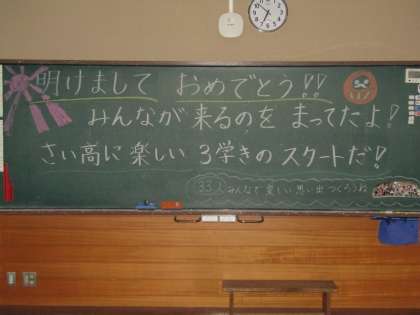 明けまして おめでとう!!
みんなが 来るのを まってたよ!
さい高に 楽しい 3学きの スタートだ!
33人みんなで 楽しい 思い出 つくろうね